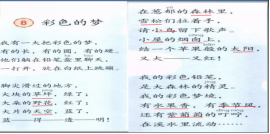 8 彩色的梦
我有一大把彩色的梦，
有的长，有的圆，有的硬。
他们躺在铅笔盒里聊天，
一打开，就在白纸上跳蹦。
脚尖滑过的地方，
大块的草坪，绿了；
大朵的野花，红了；
大片的天空，蓝了，
蓝——得——透——明！
在葱郁的森林里，
雪松们拉着手，
请小鸟留下歌声。
小屋的烟囱上，
结一个苹果般的太阳，
又大——又红！
我的彩色铅笔，
是大森林的精灵。
我的彩色梦境，
有水果香，有季节风，
还有紫葡萄的叮咛，
在溪水里流动……